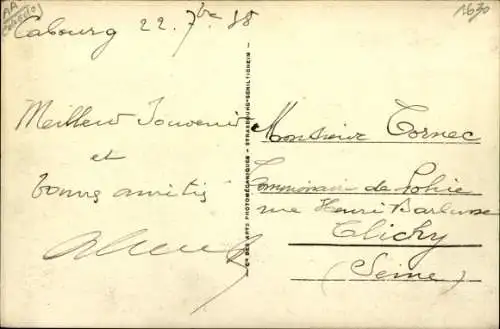 AA
Calvados
1630
Cabourg 22. 7bre 38
Meilleur Souvenir
et
bonnes amitiés
Cie DES ARTS PHOTOMÉCANIQUES - STRASBOURG-SCHILTIGHEIM
Monsieur Cornec
Commissaire de Police
rue Henri Barbusse
Clichy
(Seine)